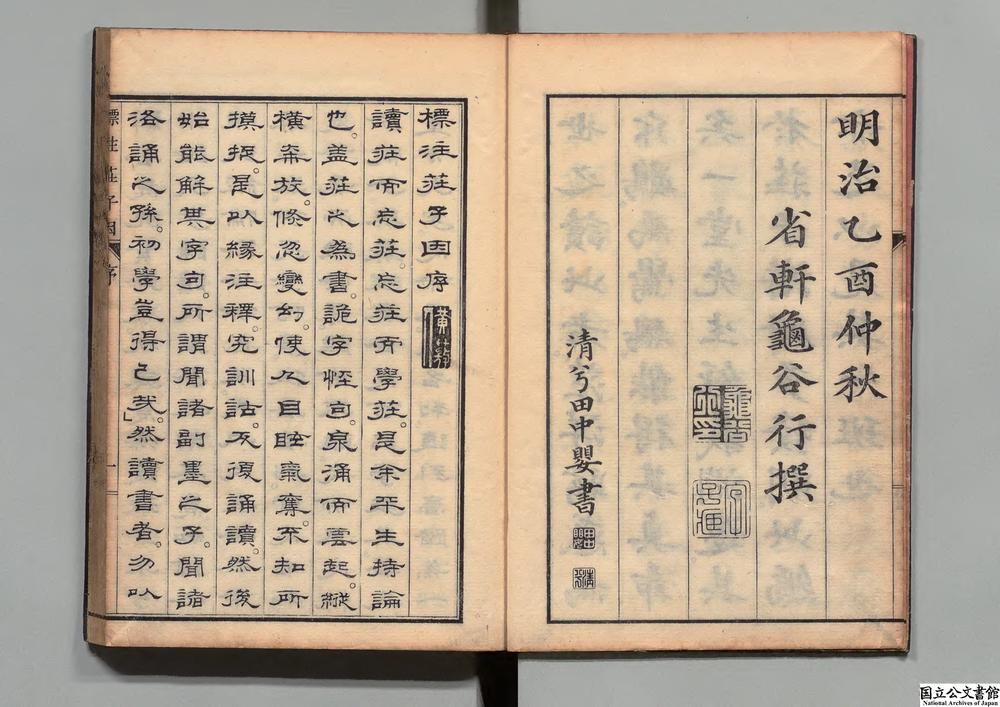 明治乙酉仲秋
省軒龜谷行撰
清兮田中嬰書
標注莊子因序
讀莊而忘莊。忘莊而學莊。是余平生持論
也。蓋莊之為書。詭字怪句。泉涌而雲起。縱
橫奔放。倏忽變幻。使人目眩氣奪。不知所
摸捉。是以緣注釋。究訓詁。反復誦讀。然後
始能解其字句。所謂聞諸副墨之子。聞諸
洛誦之孫。初學豈得已哉。」然讀書者。勿以
標注莊子因
序
一
国立公文書館
National Archives of Japan